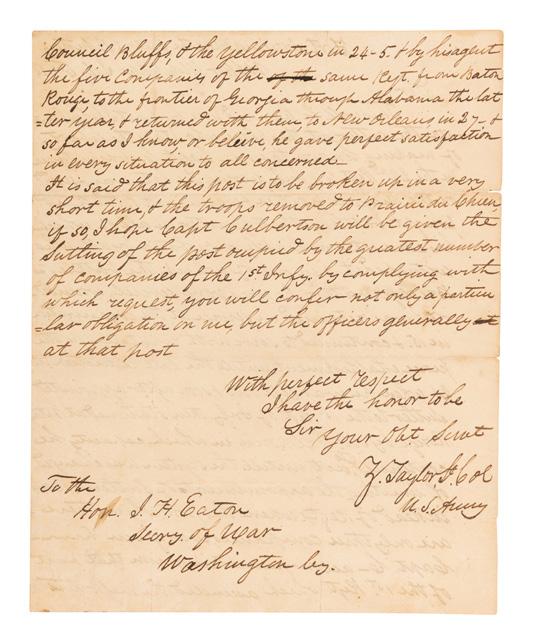 Council Bluffs, & the Yellowstone in 24-5, & by his agent
the five Companies of the of the same Regt. from Baton
Rouge, to the frontier of Georgia through Alabama the lat
=ter year, & returned with them, to New Orleans in 27- &
so far as I know or beleive, he gave perfect satisfaction
in every situation to all concerned-
It is said that this post is to be broken up in a very
short time, & the troops removed to Prairie du Chien,
if so, I hope Capt Culbertson will be given the
Sutling of the post occupied by the greatest number
of companies of the 1st Infy. by complying with
which request, you will confer not only a particu
=lar obligation on me, but the officers generally
at that post
With perfect respect
I have the honor to be
Sir
Your Obt Servt
Z. Taylor Lt. Col
U. S. Army
To the
Hon. J. H. Eaton
Secry. of War
Washington Cy.